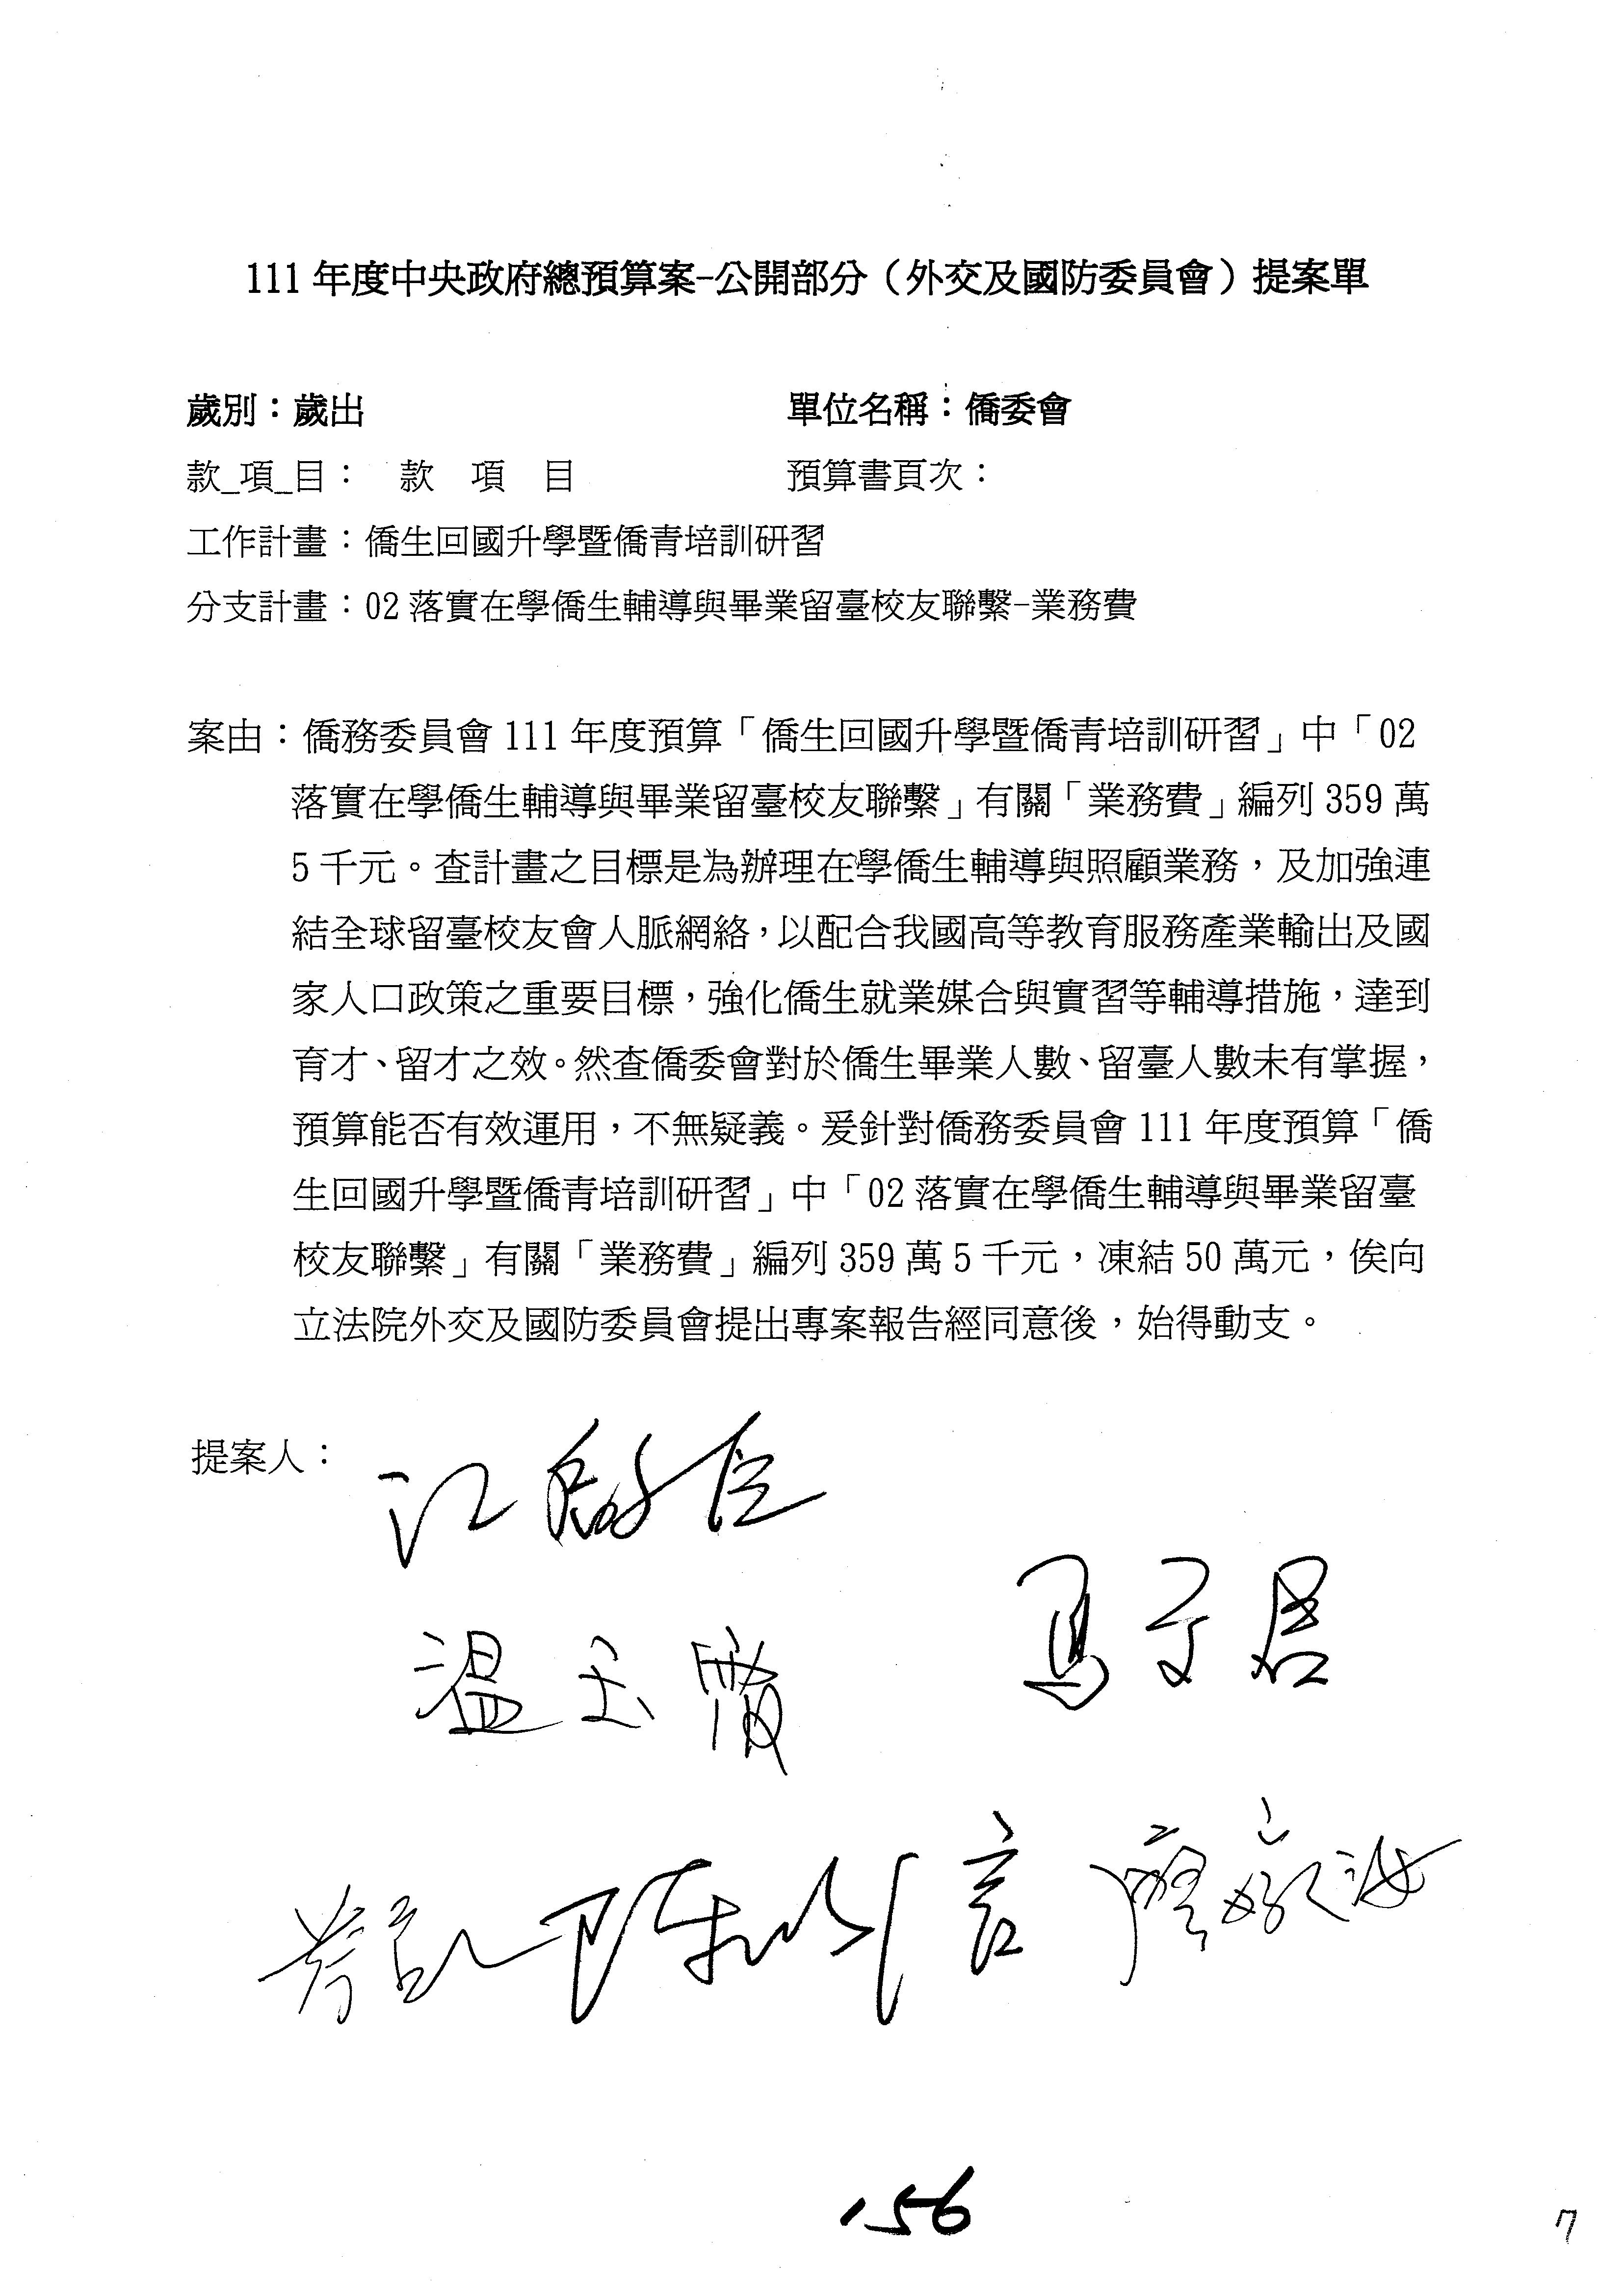 111 年度中央政府總預算案-公開部分（外交及國防委員會）提案單
歲別：歲出 單位名稱：僑委會
款_項_目： 款 項 目 預算書頁次：
工作計畫：僑生回國升學暨僑青培訓研習
分支計畫：02 落實在學僑生輔導與畢業留臺校友聯繫-業務費
案由：僑務委員會 111 年度預算「僑生回國升學暨僑青培訓研習」中「02
落實在學僑生輔導與畢業留臺校友聯繫」有關「業務費」編列 359 萬
5 千元。查計畫之目標是為辦理在學僑生輔導與照顧業務，及加強連
結全球留臺校友會人脈網絡，以配合我國高等教育服務產業輸出及國
家人口政策之重要目標，強化僑生就業媒合與實習等輔導措施，達到
育才、留才之效。然查僑委會對於僑生畢業人數、留臺人數未有掌握，
預算能否有效運用，不無疑義。爰針對僑務委員會 111 年度預算「僑
生回國升學暨僑青培訓研習」中「02 落實在學僑生輔導與畢業留臺
校友聯繫」有關「業務費」編列 359 萬 5 千元，凍結 50 萬元，俟向
立法院外交及國防委員會提出專案報告經同意後，始得動支。
提案人：
江啟臣
馬文君
溫玉霞
陳以信
156
7